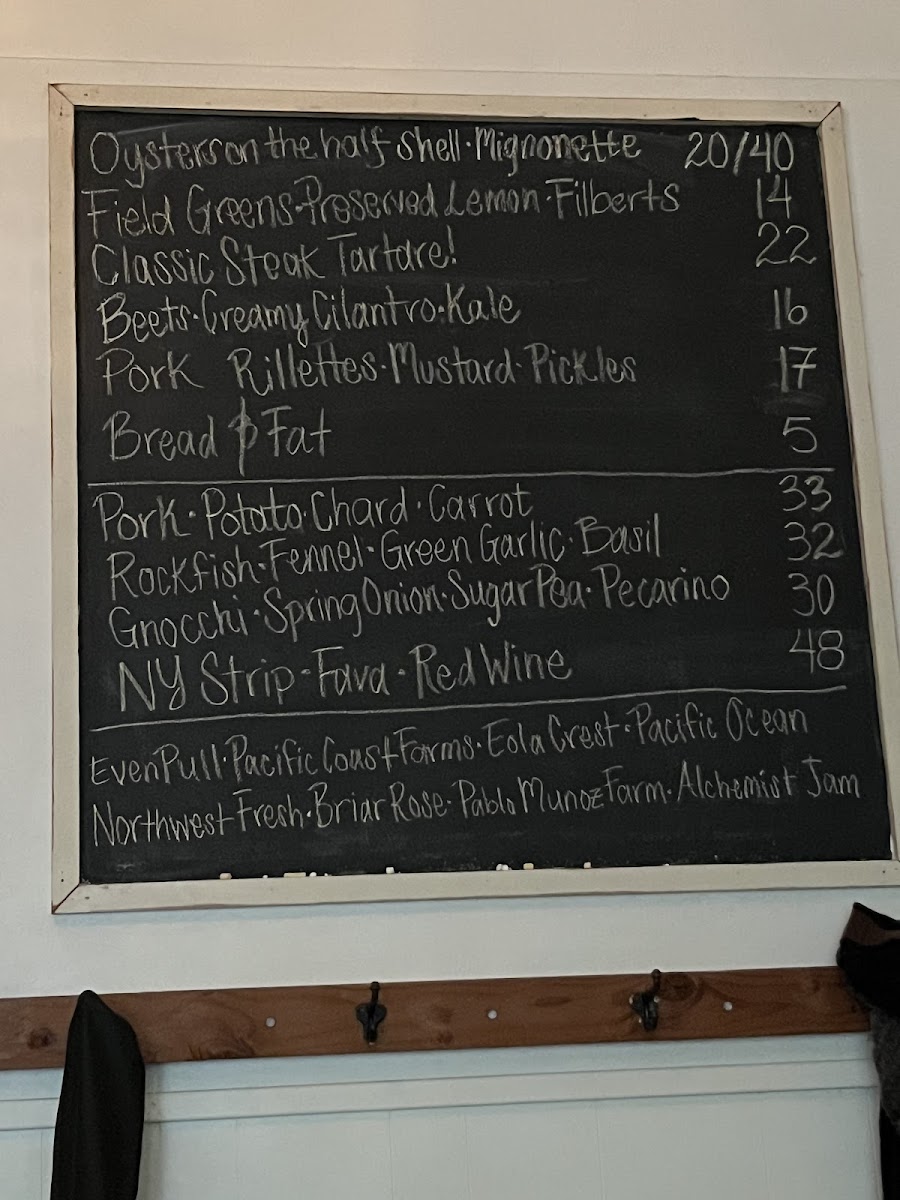 Oysters on the half Shell · Mignonette 20/40
Field Greens · Preserved Lemon · Fillberts 14
Classic Steak Tartare! 22
Beets · Creamy Cilantro · Kale 16
Pork Rillettes · Mustard · Pickles 17
Bread & Fat 5
Pork · Potato · Chard · Carrot 33
Rockfish · Fennel · Green Garlic · Basil 32
Gnocchi · Spring Onion · Sugar Pea · Pecarino 30
NY Strip · Fava · Red Wine 48
Even Pull · Pacific Coast Farms · Eola Crest · Pacific Ocean
Northwest Fresh · Briar Rose · Pablo Munoz Farm · Alchemist Jam